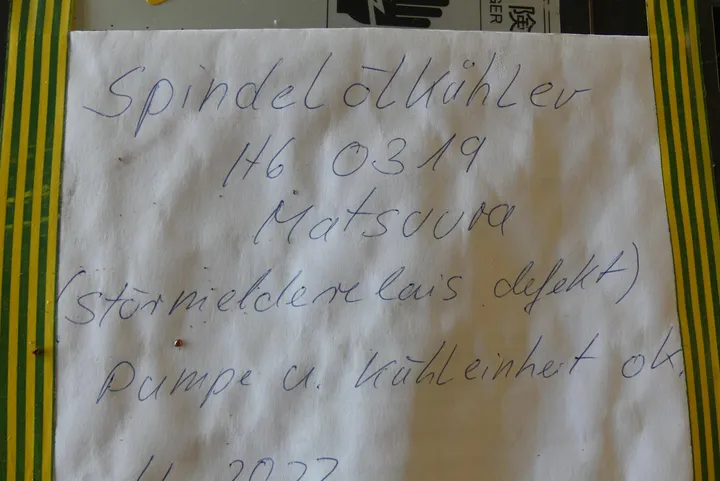 険
GER
Spindelölkühler
H6 0319
Matsuura
(Störmelderelais defekt)
Pumpe u. Kühleinheit ok.